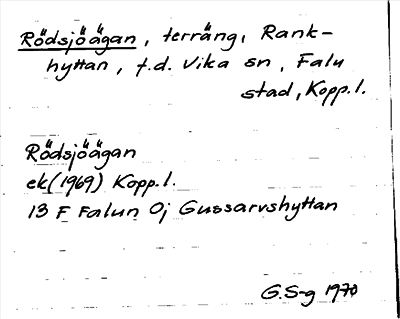 Rödsjöägan, terräng, Rank-
hyttan, f.d. Vika sn, Falu
stad, Kopp.l.
Rödsjöägan
ek(1969) Kopp.l.
13 F Falun 0j Gussarvshyttan
G.S-g 1970